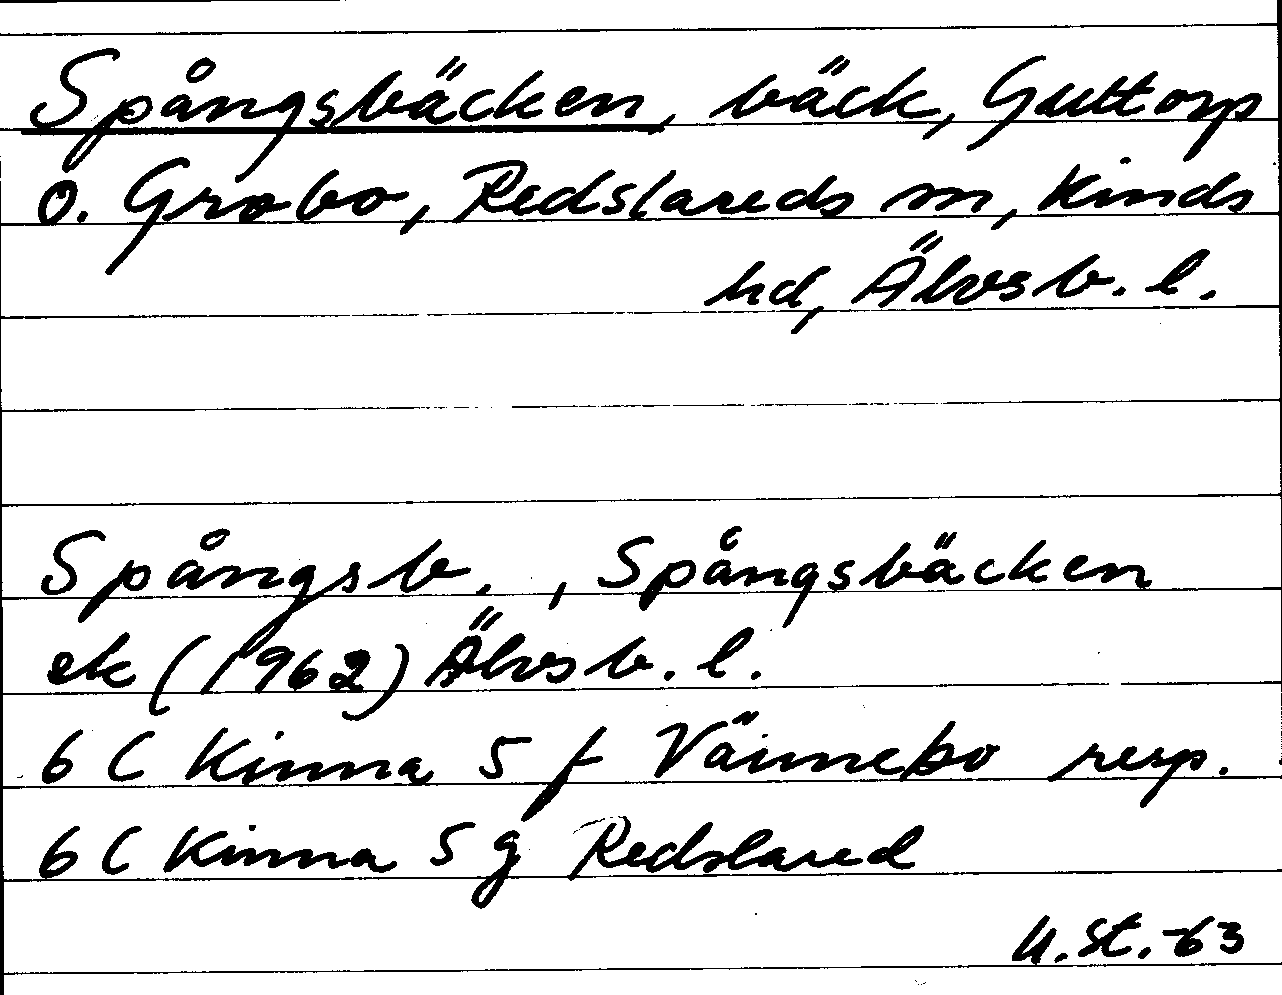 Spångsbäcken, bäck, Guttorp
o. Grobo, Redslareds sn, Kinds
hd, Älvsb. l.
Spångsb., Spångsbäcken
ek (1962) Älvsb. l.
6 C Kinna 5 f Vännebo resp.
6 C Kinna 5 g Redslared
U.St.-63